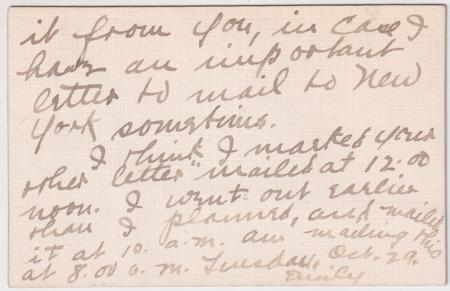 it from you, in case I
have an important
letter to mail to New
York sometime.
I think I marked your
other letter "mailed at 12.00
noon. I went out earlier
than I planned, and mailed
it at 10. a.m. am mailing this
at 8.00 a.m. Tuesday, Oct. 29.
Emily